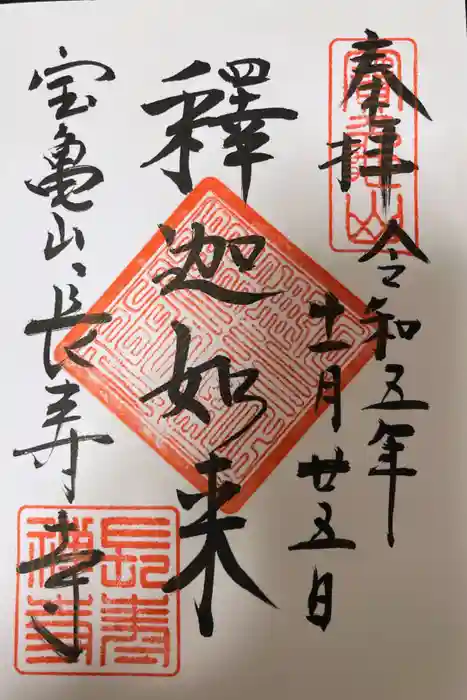 奉拝
令和五年
十一月廿五日
釋迦如来
宝亀山長寿寺
寶亀山
長壽禅寺